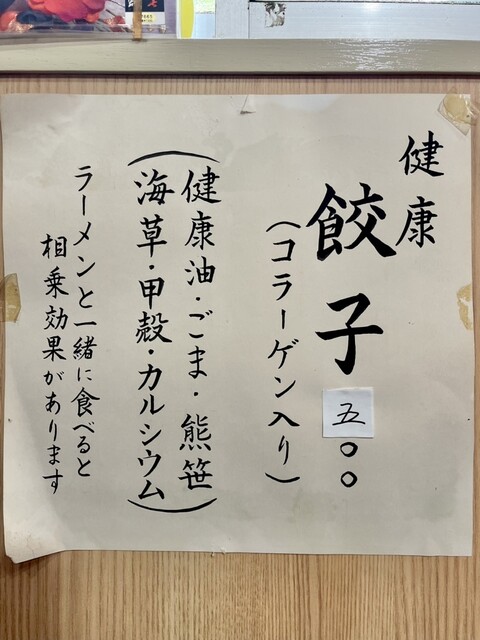 健康
餃子 五〇〇
(コラーゲン入り)
(健康油・ごま・熊笹
海草・甲殻・カルシウム)
ラーメンと一緒に食べると
相乗効果があります